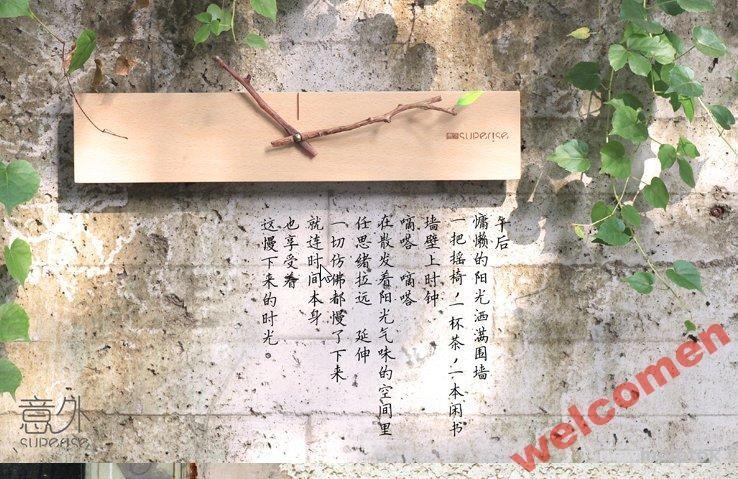 意外 superise
午后
慵懒的阳光洒满围墙
一把摇椅,一杯茶,一本闲书
墙壁上时钟
嘀嗒 嘀嗒
在散发着阳光气味的空间里
任思绪拉远 延伸
一切仿佛都慢了下来
就连时间本身
也享受着
这慢下来的时光。
意外
SUPERISE
welcomen